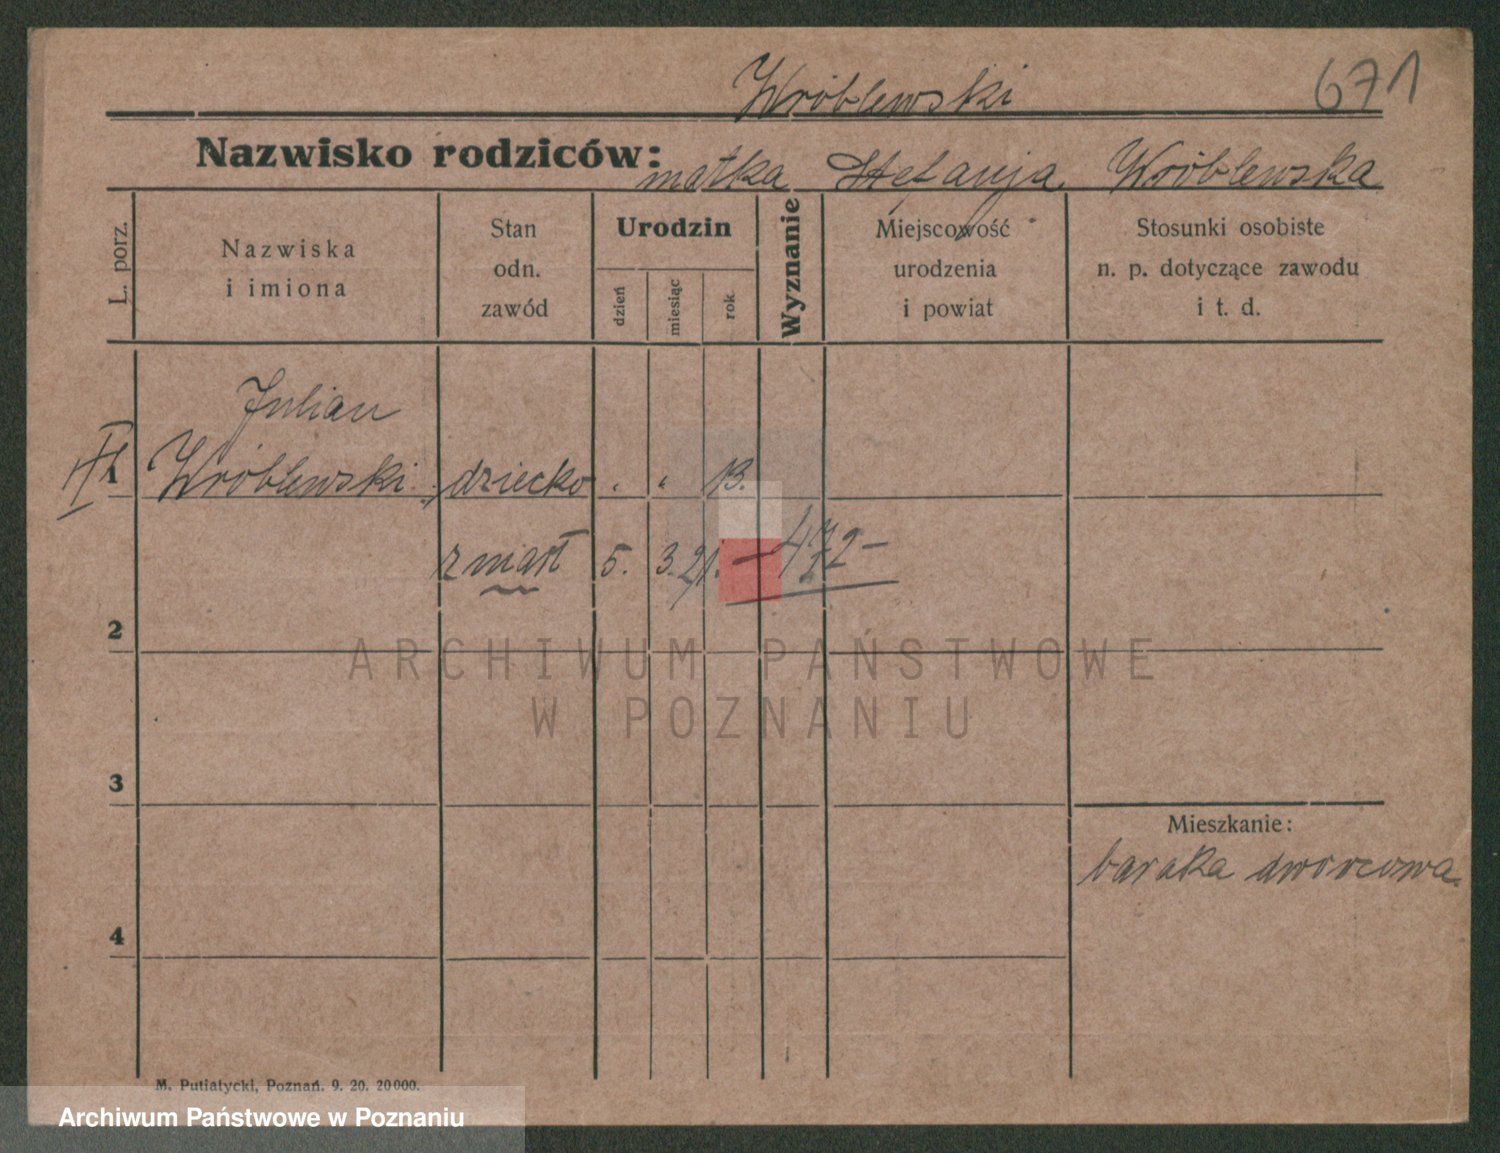 Wróblewski 671
Nazwisko rodziców: matka Stefanja Wróblewska
L. porz.
Nazwiska
i imiona
Stan
odn.
zawód
Urodzin
dzień
miesiąc
rok
Wyznanie
Miejscowość
urodzenia
i powiat
Stosunki osobiste
n. p. dotyczące zawodu
i t. d.
Julian
1 Wróblewski dziecko " " 13.
zmarł 5. 3. 21. — 472 —
2
3
4
Mieszkanie:
baraka dworcowa.
M. Putiatycki, Poznań. 9. 20. 20000.
ARCHIWUM PAŃSTWOWE
W POZNANIU
Archiwum Państwowe w Poznaniu